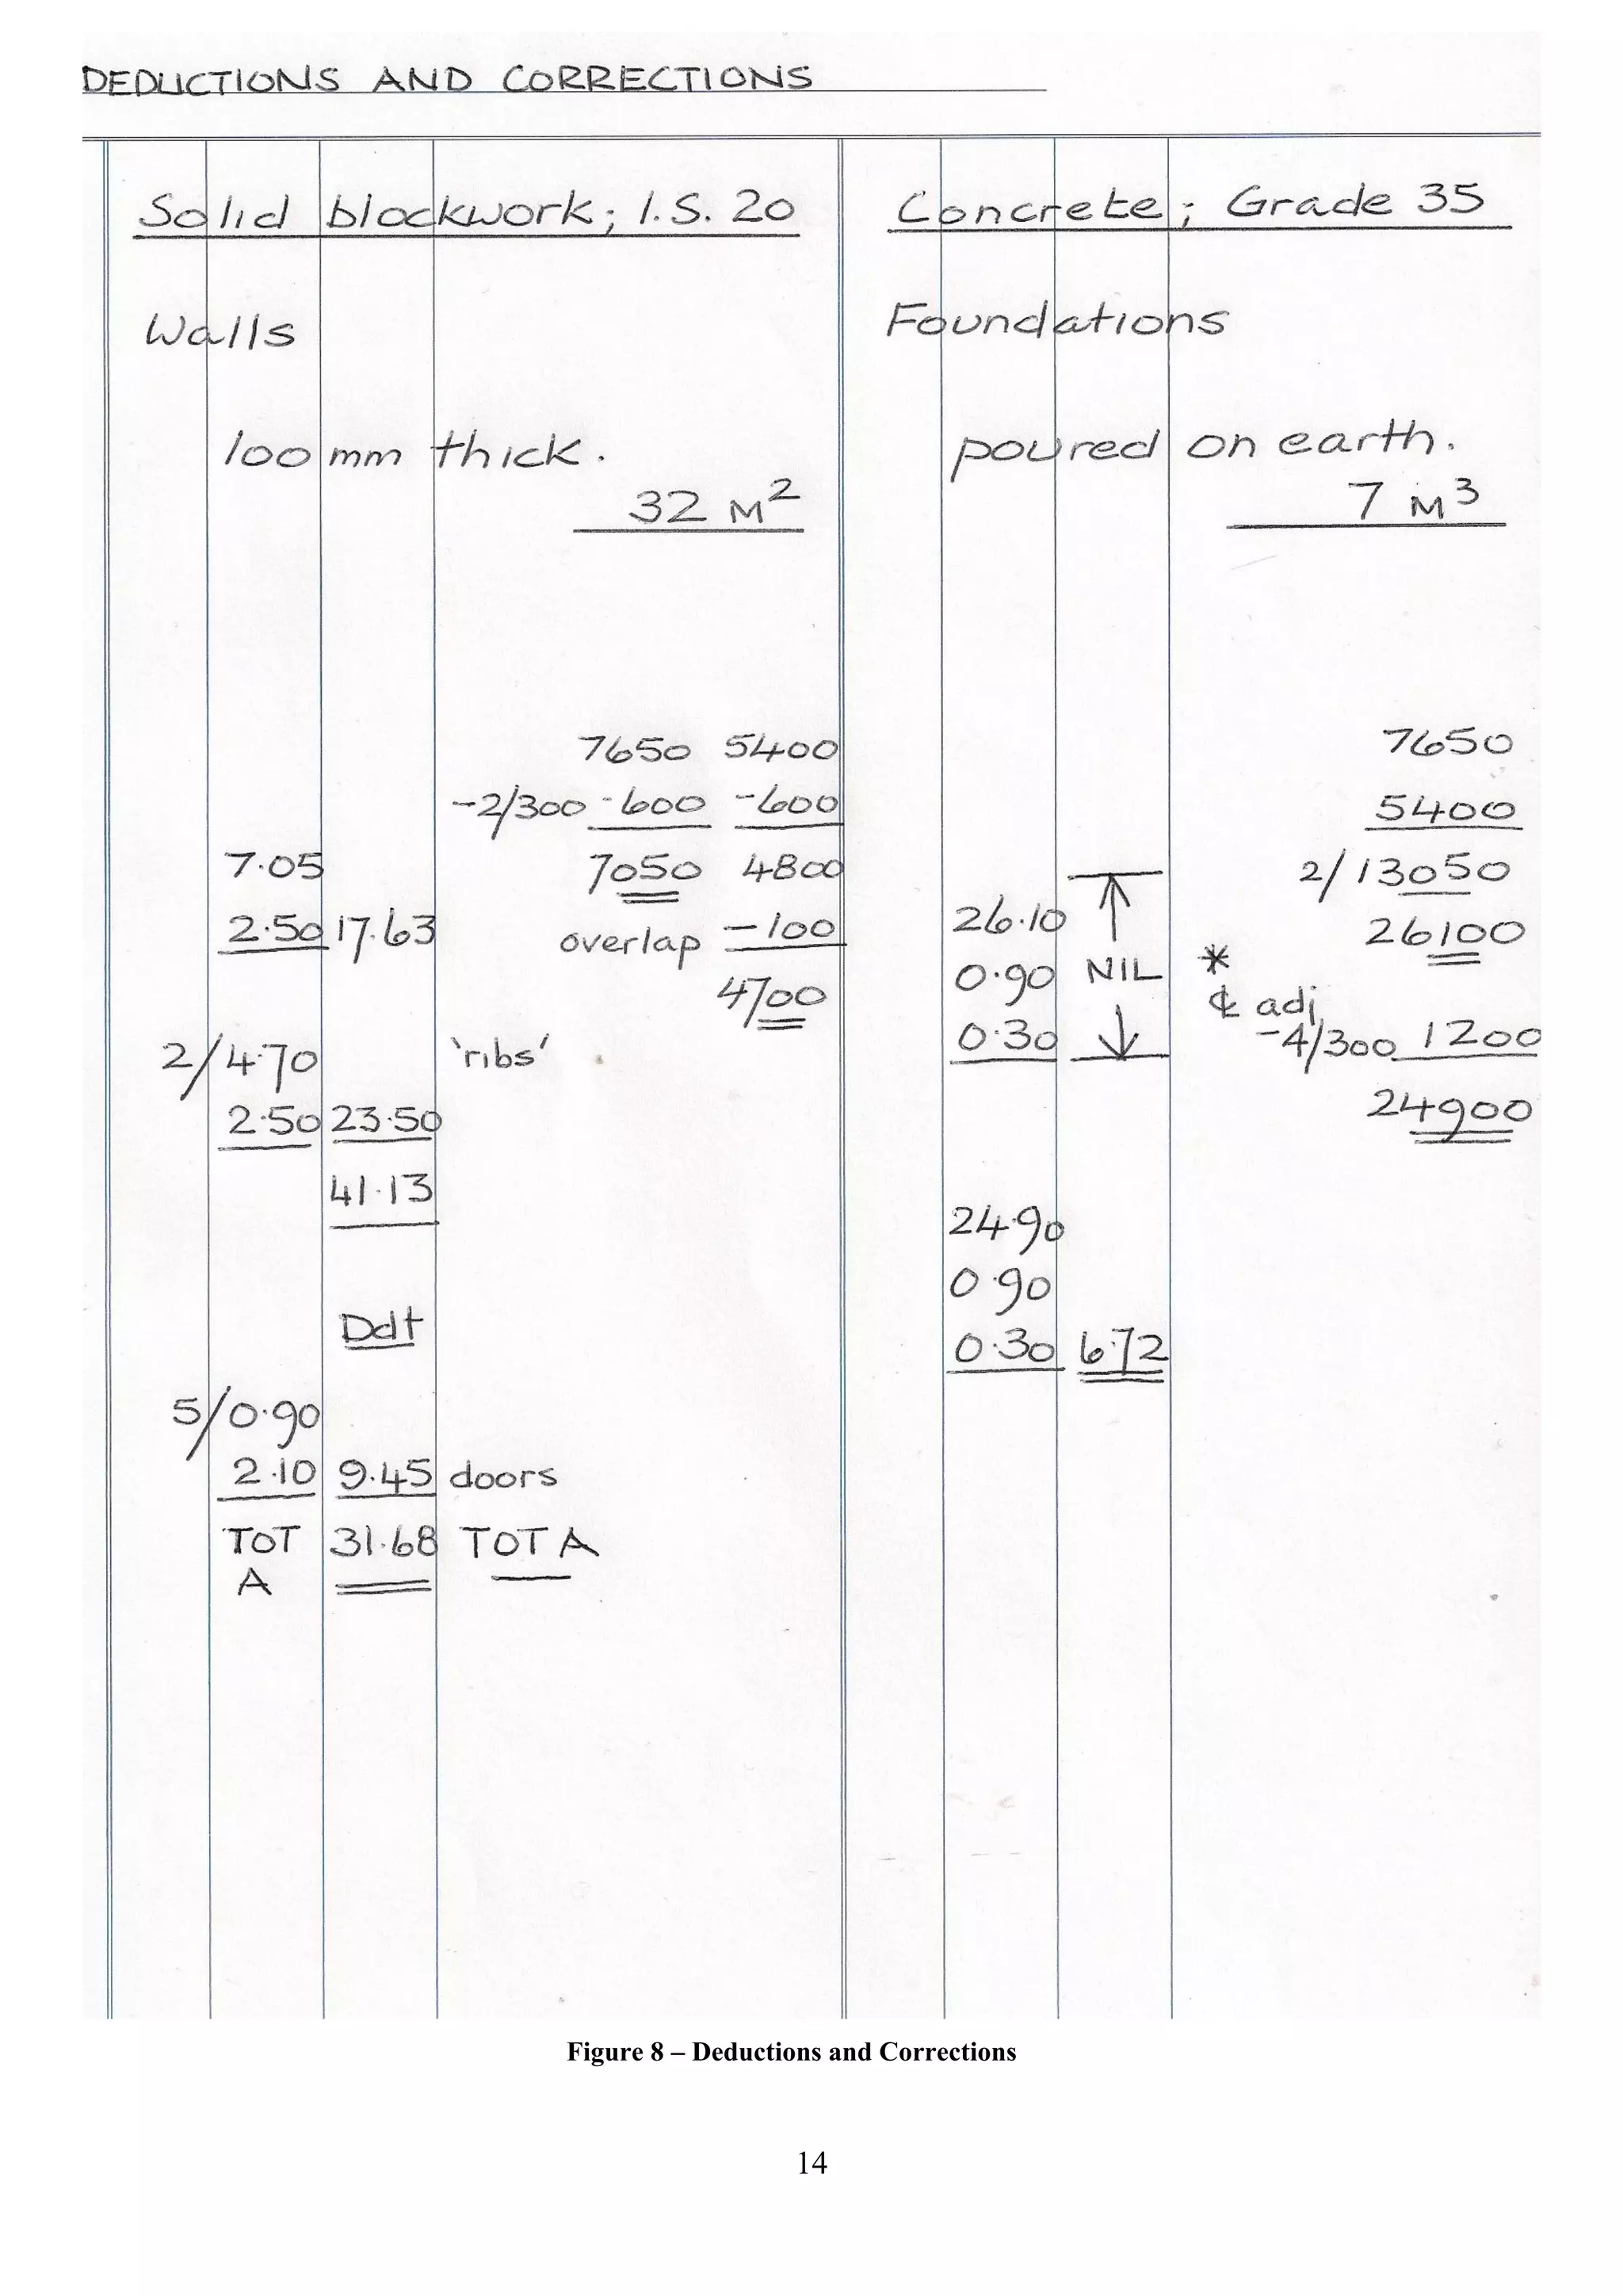 DEDUCTIONS AND CORRECTIONS
Solid blockwork; I.S. 20
Walls
100 mm thick.
32 M²
7650 5400
-2/300 -600 -600
7.05 7050 4800
2.50 17.63 overlap -100
4700
2/4.70 'ribs'
2.50 23.50
41.13
Ddt
5/0.90
2.10 9.45 doors
TOT 31.68 TOT A
A
Concrete; Grade 35
Foundations
poured on earth.
7 M³
7650
5400
2/13050
26.10 26100
0.90 NIL *
¢ adj
0.30 -4/300 1200
24900
24.90
0.90
0.30 6.72
Figure 8 – Deductions and Corrections
14